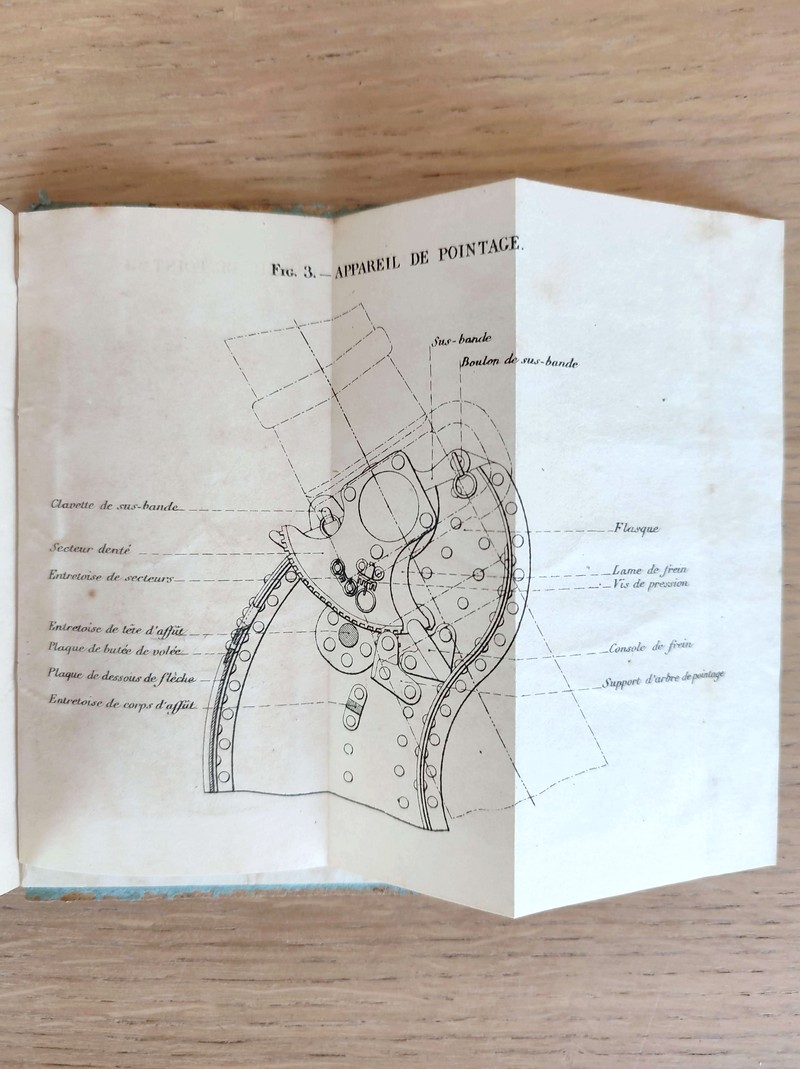 FIG. 3. — APPAREIL DE POINTAGE.
Sus-bande
Boulon de sus-bande
Clavette de sus-bande
Secteur denté
Entretoise de secteurs
Entretoise de tête d'affût
Plaque de butée de volée
Plaque de dessous de flèche
Entretoise de corps d'affût
Flasque
Lame de frein
Vis de pression
Console de frein
Support d'arbre de pointage